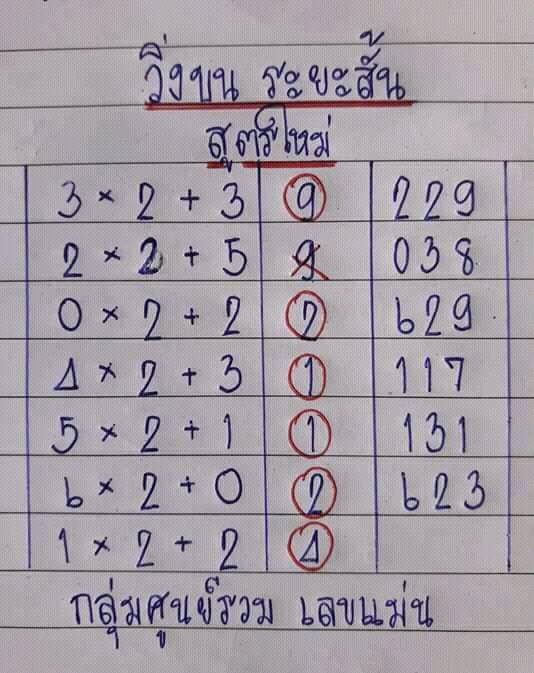 วิ่งบน ระยะสั้น
สูตรใหม่
3 × 2 + 3 9 229
2 × 2 + 5 9 038
0 × 2 + 2 2 629
4 × 2 + 3 1 117
5 × 2 + 1 1 131
6 × 2 + 0 2 623
1 × 2 + 2 4
กลุ่มศูนย์รวม เลขแม่น